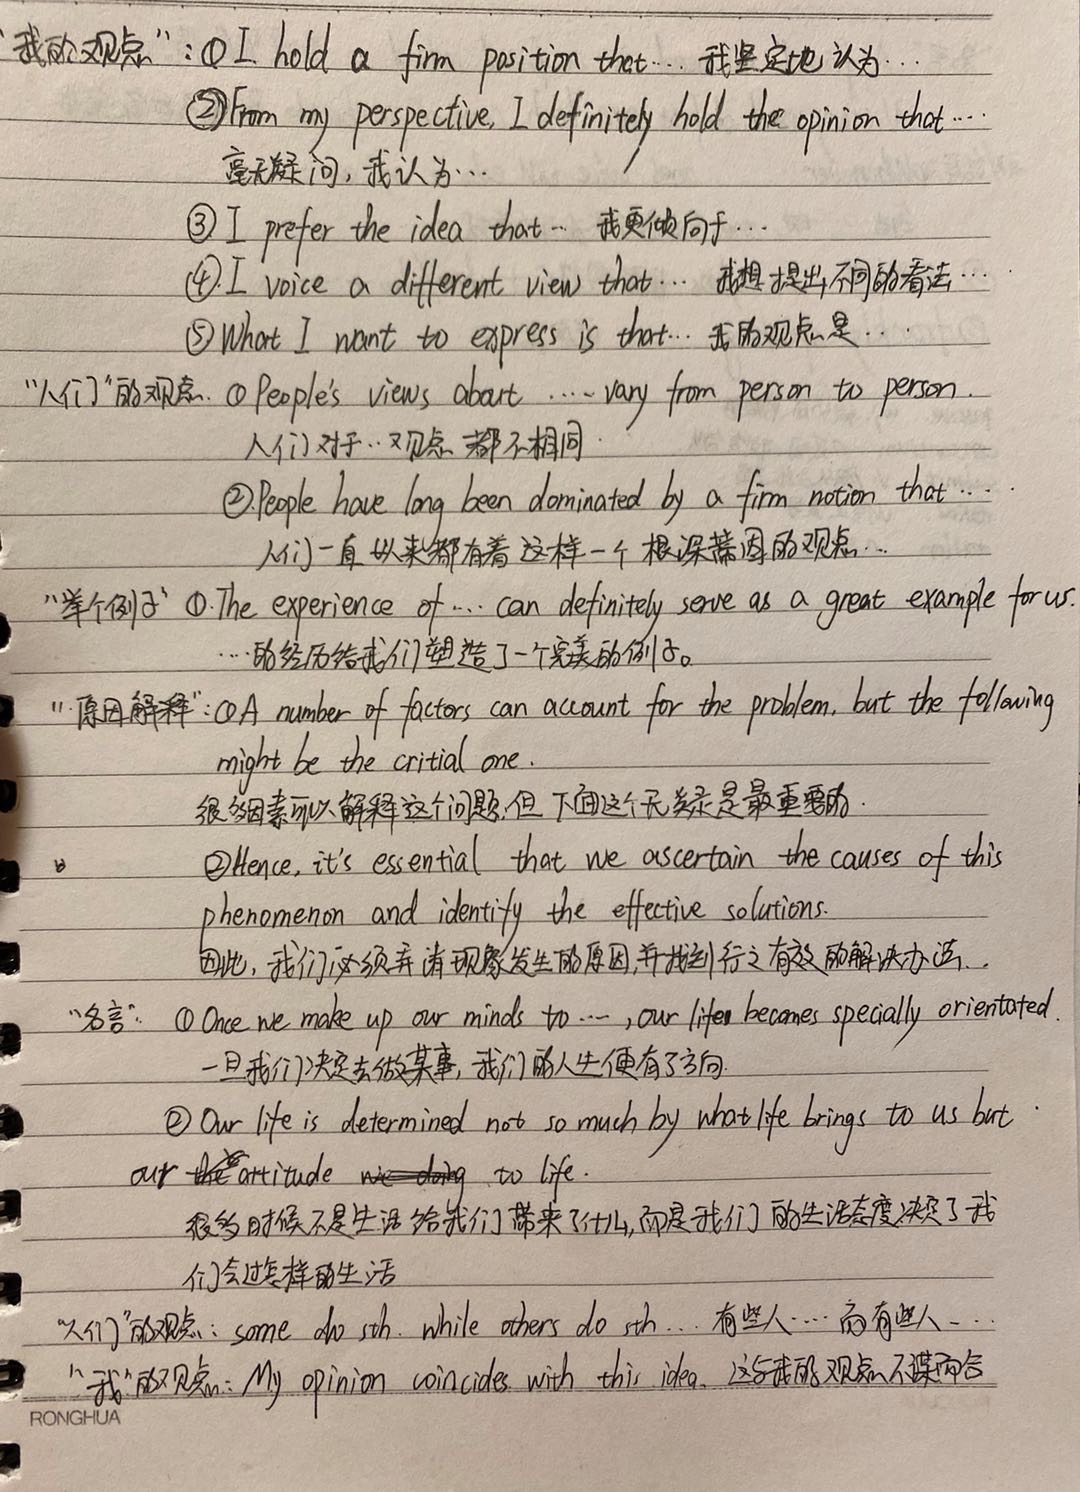 "我的观点":①I hold a firm position that.... 我坚定地认为...
②From my perspective, I definitely hold the opinion that....
毫无疑问,我认为...
③I prefer the idea that... 我更倾向于...
④.I voice a different view that... 我想提出不同的看法...
⑤What I want to express is that... 我的观点是...
"人们"的观点. ①People's views about ..... vary from person to person.
人们对于...观点都不相同.
②.People have long been dominated by a firm notion that ....
人们一直以来都有着这样一个根深蒂固的观点...
"举个例子" ①.The experience of .... can definitely serve as a great example for us.
....的经历给我们塑造了一个完美的例子。
"原因解释":①A number of factors can account for the problem, but the following
might be the critial one.
很多因素可以解释这个问题,但下面这个无疑是最重要的.
②Hence, it's essential that we ascertain the causes of this
phenomenon and identify the effective solutions.
因此,我们必须弄清现象发生的原因,并找到行之有效的解决办法...
"名言": ①Once we make up our minds to ...., our life becomes specially orientated.
一旦我们决定去做某事,我们的人生便有了方向.
②Our life is determined not so much by what life brings to us but
our attitude to life.
很多时候不是生活给我们带来了什么,而是我们的生活态度决定了我
们会过怎样的生活
"人们"的观点: some do sth. while others do sth... 有些人.....而有些人....
"我"的观点: My opinion coincides with this idea. 这与我的观点不谋而合
RONGHUA